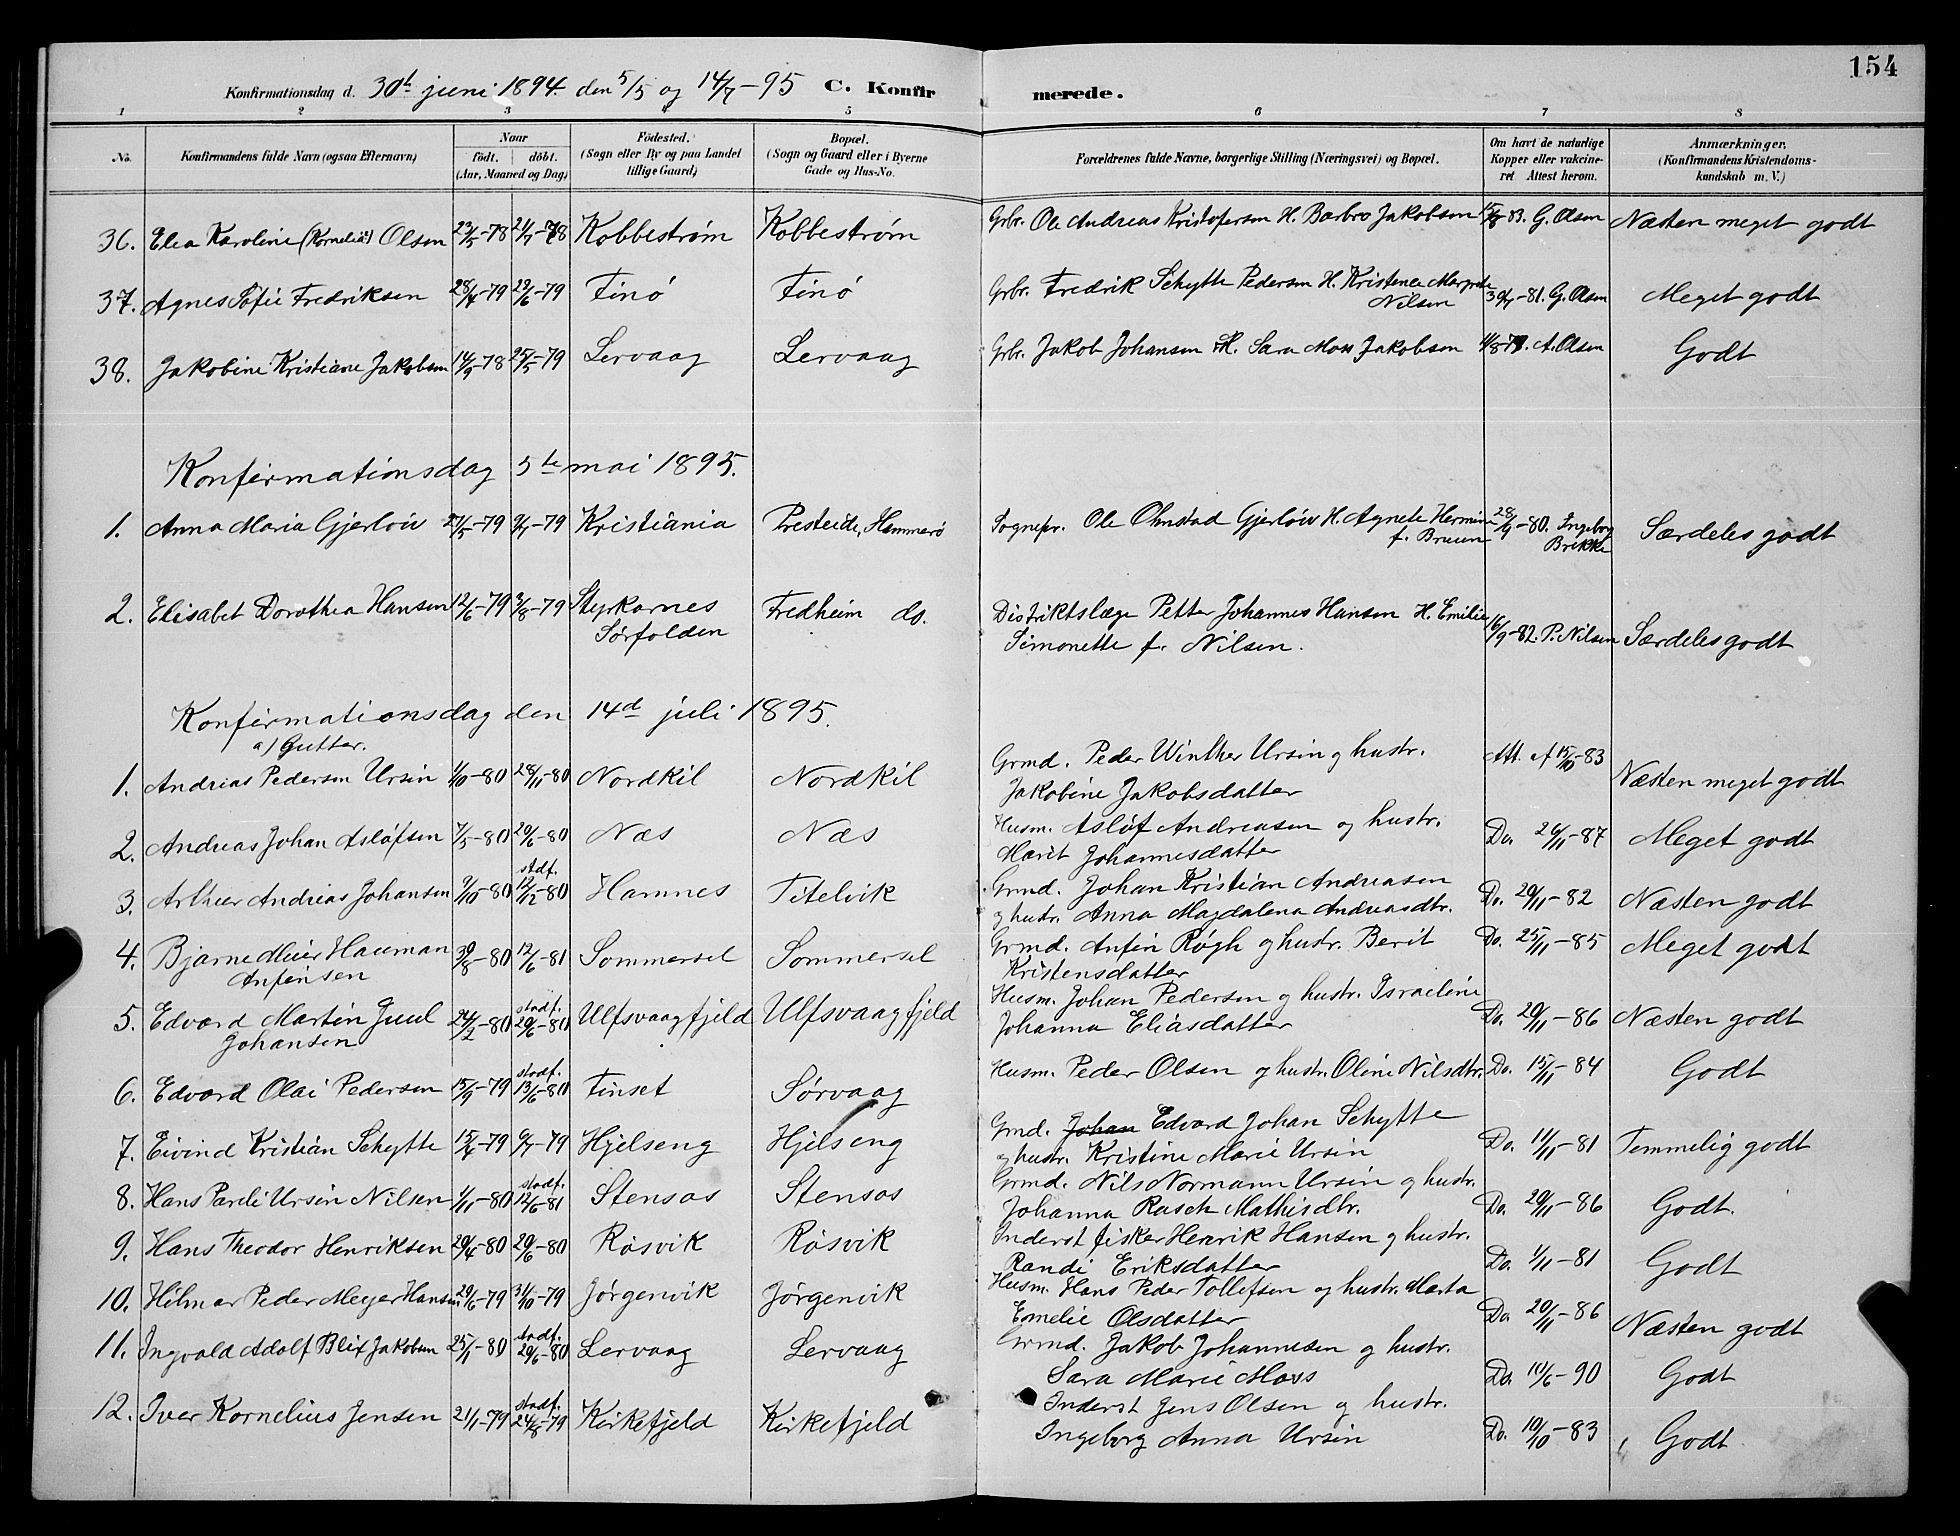 154
Konfirmationsdag d. 30te juni 1894. den 5/5 og 14/7-95 C. Konfirmerede.
1 2 3 4 5 6 7 8
No. Konfirmandens fulde Navn (ogsaa Efternavn) Naar födt. döbt. (Aar, Maaned og Dag) Födested. (Sogn eller By og paa Landet tillige Gaard) Bopæl. (Sogn og Gaard eller i Byerne Gade og Hus-No. Forældrenes fulde Navne, borgerlige Stilling (Næringsvei) og Bopæl. Om havt de naturlige Kopper eller vakcineret Attest herom. Anmærkninger. (Konfirmandens Kristendomskundskab m. V.)
36. Elea Karoline (Kornelia) Olsen 23/5-78 21/7-78 Kobbestrøm Kobbestrøm Grbr. Ole Andreas Kristofersen H. Barbro Jakobsen 15/8-83. G. Olsen Næsten meget godt
37. Agnes Sofie Fredriksen 28/4-79 29/6-79 Finö Finö Grbr. Fredrik Schytte Pedersen H. Kristence Margrete Nilsen 30/7-81. G. Olsen Meget godt
38. Jakobine Kristiane Jakobsen 14/9-78 25/5-79 Lervaag Lervaag Grbr. Jakob Johansen H. Sara Moss Jakobsen A. Olsen Godt
Konfirmationsdag 5te mai 1895.
1. Anna Maria Gjerløw 21/5-79 9/7-79 Kristiania Presteide, Hammerö Sognepr. Ole Ohnstad Gjerløw H. Agnete Hermine f. Bruun 28/9-80. Ingeborg Brekke Særdeles godt
2. Elisabet Dorothea Hansen 12/6-79 3/8-79 Styrkarnes Sørfolden Fredheim do. Distriktslæge Petter Johannes Hansen H. Emilie Simonette f. Nilsen. 16/9-82. P. Nilsen Særdeles godt
Konfirmationsdag den 14d juli 1895.
a) Gutter.
1. Andreas Pedersen Ursin 1/10-80 28/11-80 Nordkil Nordkil Grmd. Peder Winther Ursin og hustr. Jakobine Jakobsdatter Att. af 15/10-83 Næsten meget godt
2. Andreas Johan Asløfsen 7/5-80 20/6-80 Næs Næs Husm. Asløf Andreasen og hustr. Marit Johannesdatter Do. 26/11-87 Meget godt
3. Arthur Andreas Johansen 9/10-80 stadf. 12/12-80 Hamnes Titelvik Grmd. Johan Kristian Andreasen og hustr. Anna Magdalena Andreasdtr. Do. 20/11-82 Næsten godt
4. Bjarne Meier Hauman Anfinsen 30/8-80 12/6-81 Sommersel Sommersel Grmd. Anfin Røgh og hustr. Berit Kristensdatter Do. 25/11-85 Meget godt
5. Edvard Martin Juul Johansen 24/2-80 stadf. 20/6-80 Ulfsvaagfjeld Ulfsvaagfjeld Husm. Johan Pedersen og hustr. Israeline Johanna Eliasdatter Do. 20/11-86 Næsten godt
6. Edvard Olai Pedersen 15/9-79 stadf. 13/6-80 Finset Sørvaag Husm. Peder Olsen og hustr. Oline Nilsdtr. Do. 15/11-84 Godt
7. Eivind Kristian Schytte 15/4-79 6/7-79 Hjelseng Hjelseng Grmd. Johan Edvard Johan Schytte og hustr. Kristine Marie Ursin Do. 11/11-81 Temmelig godt
8. Hans Pareli Ursin Nilsen 1/11-80 stadf. 12/6-81 Stensos Stensos Grmd. Nils Normann Ursin og hustr. Johanna Rasch Mathisdtr. Do. 20/11-86 Godt.
9. Hans Theodor Henriksen 29/4-80 20/6-80 Røsvik Røsvik Inderst fisker Henrik Hansen og hustr. Randi Eriksdatter Do. 1/11-81 Godt
10. Hilmar Peder Meyer Hansen 29/6-79 31/10-79 Jørgenvik Jørgenvik Husm. Hans Peder Tollefsen og hustr. Marta Emelie Olsdatter Do. 20/11-86 Næsten godt
11. Ingvald Adolf Blix Jakobsen 25/1-80 stadf. 20/6-80 Lervaag Lervaag Grmd. Jakob Johannesen og hustr. Sara Marie Moss Do. 10/6-90 Godt
12. Iver Kornelius Jensen 21/1-79 stadf. 24/8-79 Kirkefjeld Kirkefjeld Inderst Jens Olsen og hustr. Ingeborg Anna Ursin Do. 10/10-83 Godt